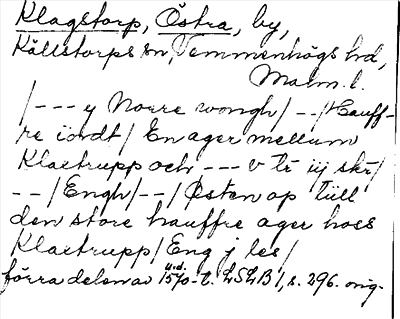 Klagstorp, Östra, by,
Källstorps sn, Vemmenhögs hd,
Malm. l.
/--- y Norre wongh/--/Hauff-
re iordt/ En ager mellum
Klartrupp och --- v tr iij skr/
--/Engh/--/Østen op till
den store hauffre ager hoes
Klartrupp/ Eng j les/
förra delen av u.d. 1570-t. LSLB 1, s. 296. orig.